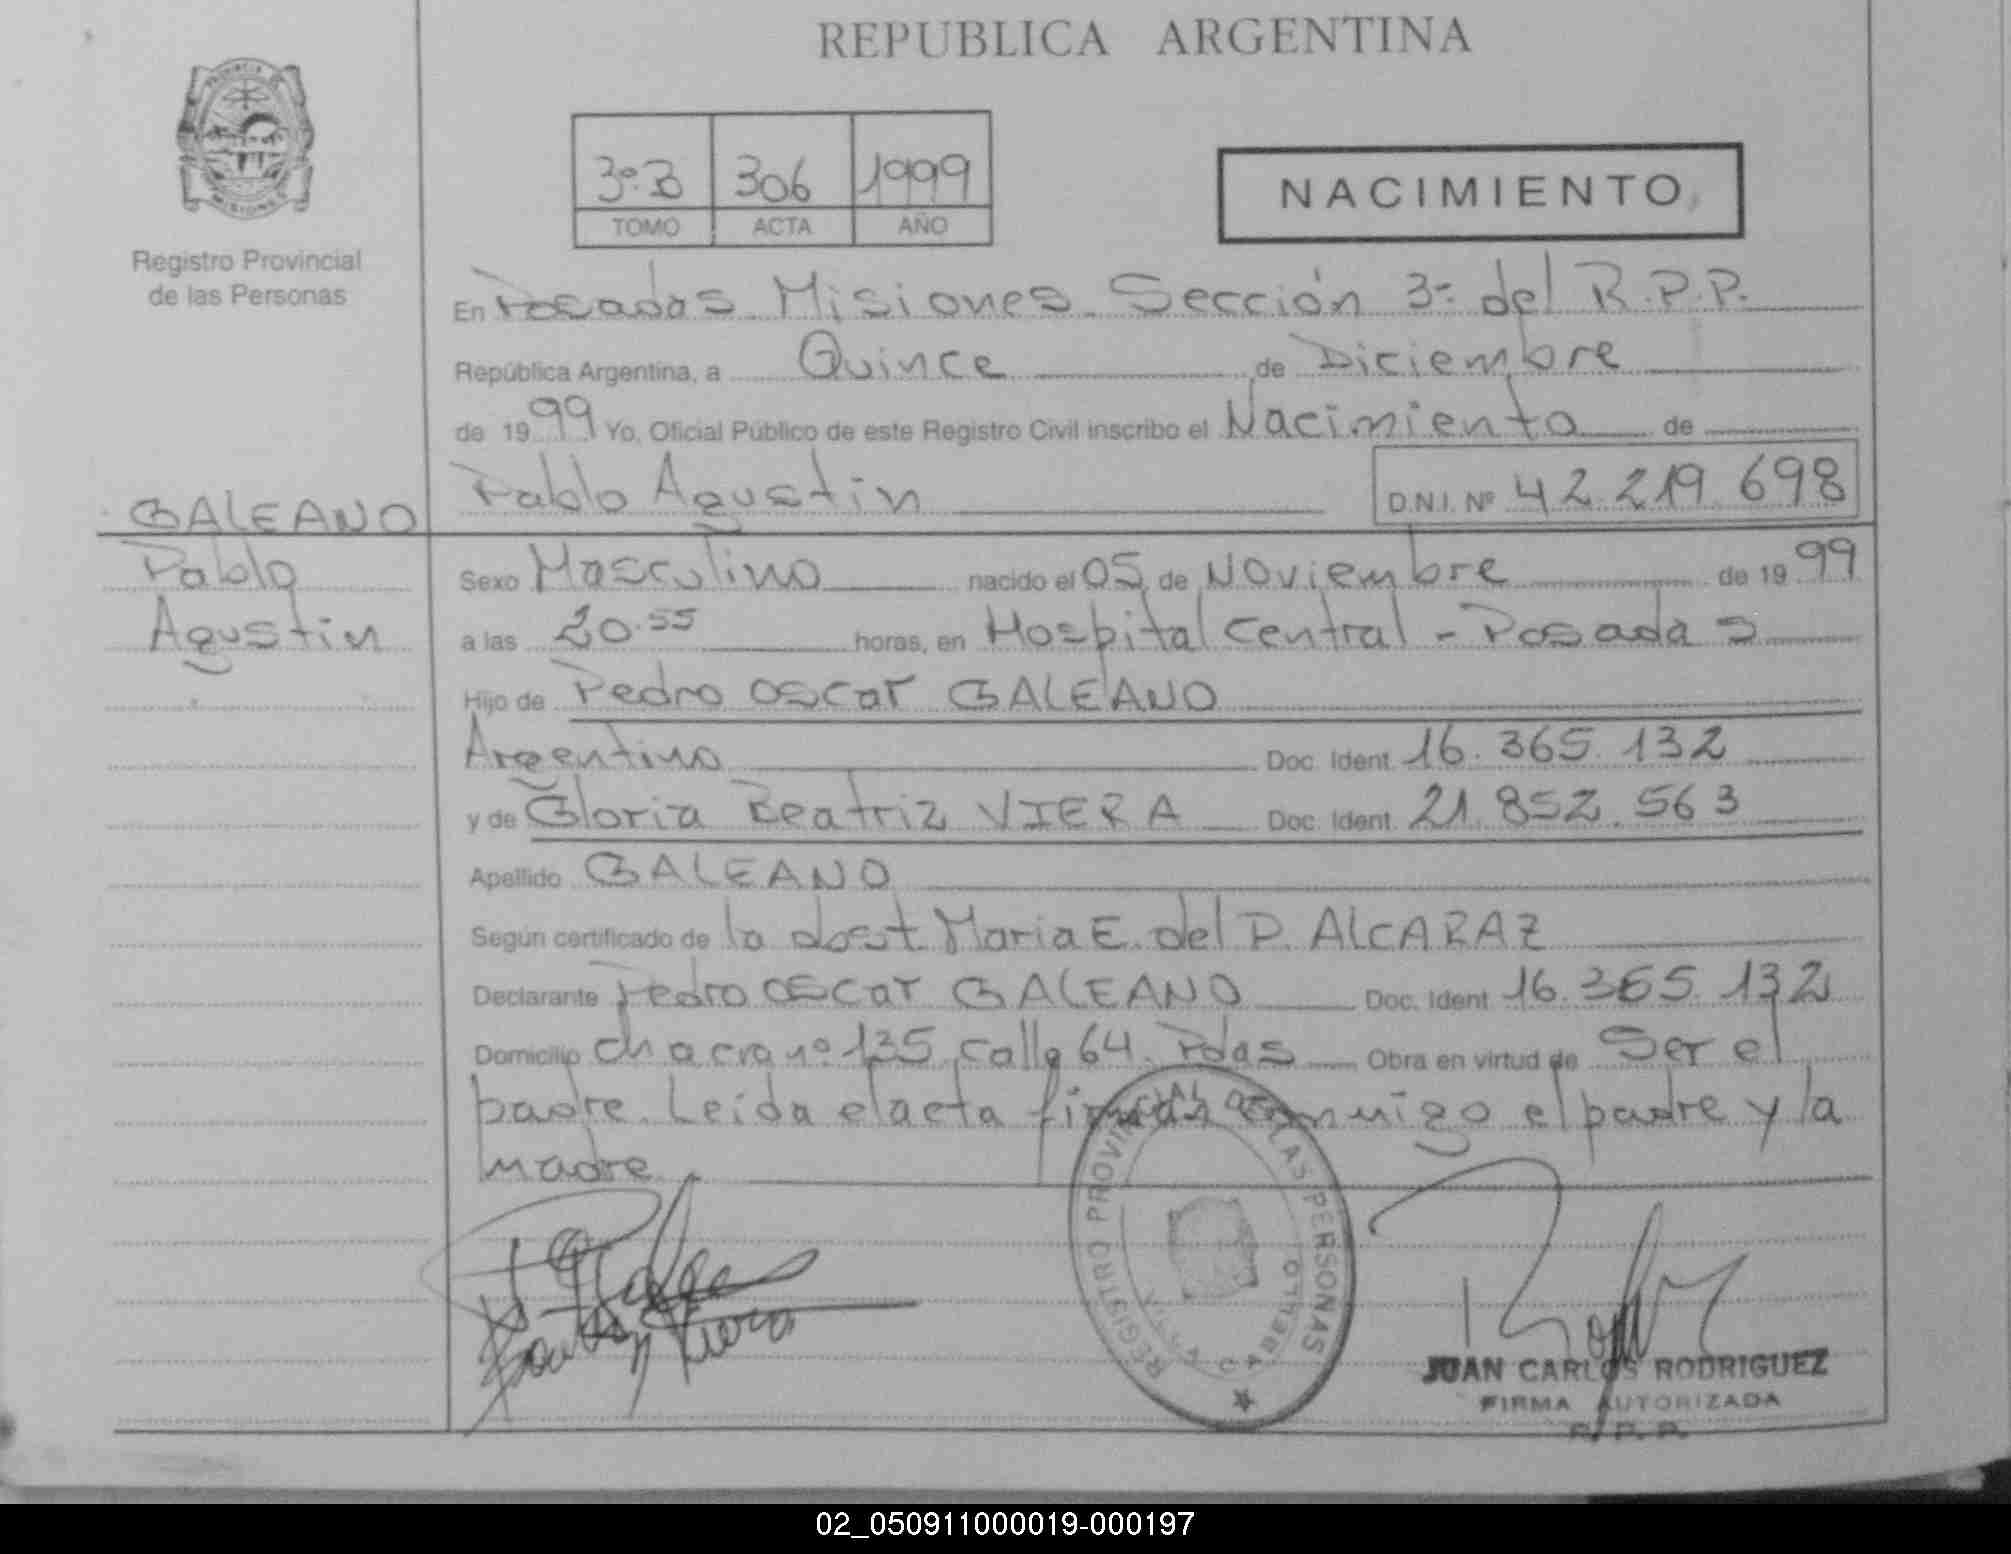 REPUBLICA ARGENTINA
PROVINCIA
MISIONES
Registro Provincial
de las Personas
3º B 306 1999
TOMO ACTA AÑO
NACIMIENTO
En Posadas Misiones Sección 3ª del R.P.P.
República Argentina, a Quince de Diciembre
de 1999 Yo, Oficial Público de este Registro Civil inscribo el Nacimiento de
Pablo Agustin D.N.I. Nº 42.219.698
GALEANO
Pablo
Agustin
Sexo Masculino nacido el 05 de Noviembre de 1999
a las 20.55 horas, en Hospital Central - Posadas
Hijo de Pedro Oscar GALEANO
Argentino Doc. Ident. 16.365.132
y de Gloria Beatriz VIERA Doc. Ident. 21.852.563
Apellido GALEANO
Según certificado de la obst. Maria E. del P. ALCARAZ
Declarante Pedro Oscar GALEANO Doc. Ident 16.365.132
Domicilio chacra nº 135 calle 64. Pdas Obra en virtud de Ser el
padre. Leida el acta firman conmigo el padre y la
madre
REGISTRO PROVINCIAL DE LAS PERSONAS
VILLA CABELLO
JUAN CARLOS RODRIGUEZ
FIRMA AUTORIZADA
R. P. P.
02_050911000019-000197